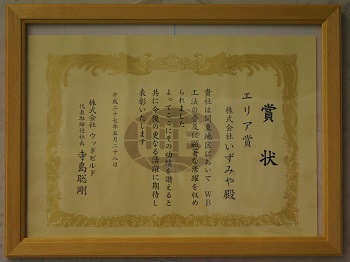 賞状
エリア賞
株式会社いずみや殿
貴社は関東地区において WB
工法の普及に顕著な活躍を収め
られました
よってここにその功績を讃えると
共に今後の更なる活躍に期待し
表彰いたします
平成二十七年五月二十八日
株式会社 ウッドビルド
代表取締役社長 寺島聡剛